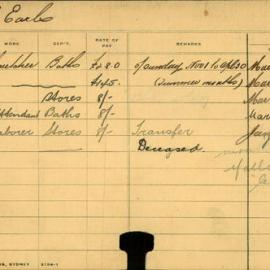 Earls
WORK DEP'T. RATE OF PAY REMARKS
Caretaker Baths £280 of Sunday Nov 1 to Apl 30
£145. (Summer months)
Stores 8/-
Attendant Baths 8/-
Laborer Stores 8/- Transfer
Deceased
SYDNEY